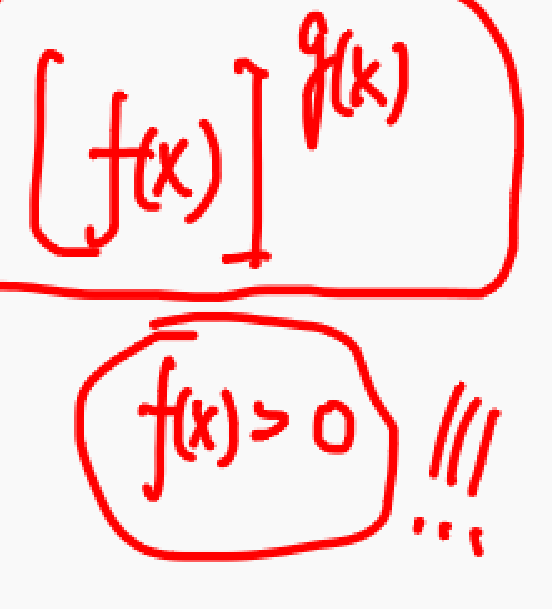 [f(x)]^g(x)
f(x) > 0 !!!